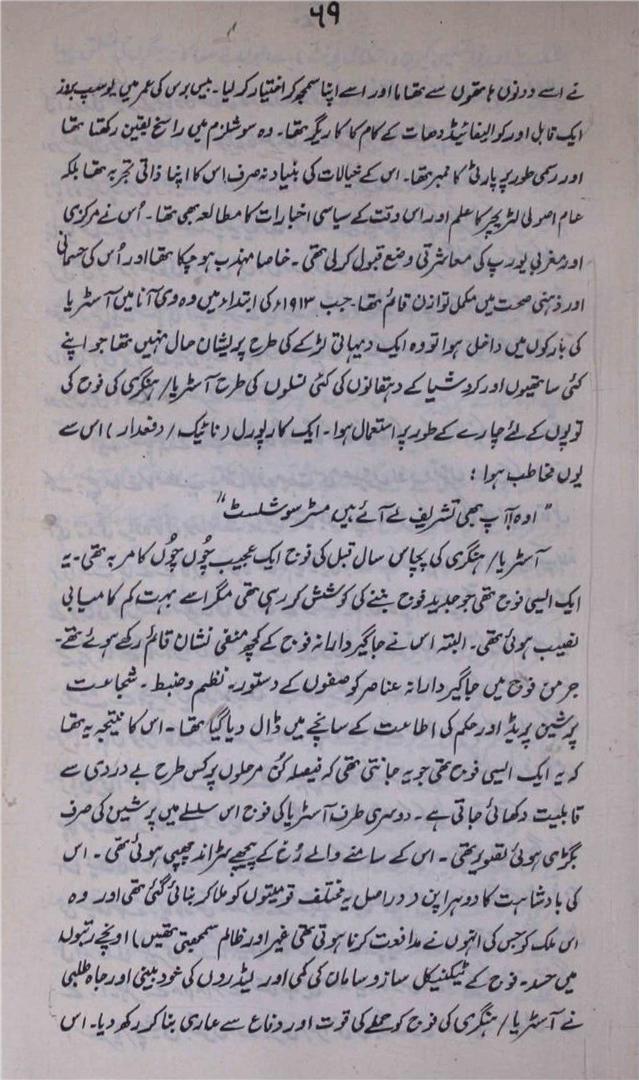 ۶۹
نے اسے دونوں ہاتھوں سے تھاما اور اسے اپنا سمجھ کر اختیار کر لیا۔ بیس برس کی عمر میں یوسیپ بروز
ایک قابل اور کوالیفائیڈ دھات کے کام کا کاریگر تھا۔ وہ سوشلزم میں راسخ یقین رکھتا تھا
اور رسمی طور پر پارٹی کا ممبر تھا۔ اس کے خیالات کی بنیاد نہ صرف اس کا اپنا ذاتی تجربہ تھا بلکہ
عام اصولی لٹریچر کا علم اور اس وقت کے سیاسی اخبارات کا مطالعہ بھی تھا۔ اُس نے مرکزی
اور مغربی یورپ کی معاشرتی وضع قبول کر لی تھی۔ خاصا مہذب ہو چکا تھا اور اُس کی جسمانی
اور ذہنی صحت میں مکمل توازن قائم تھا۔ جب ۱۹۱۳ء کی ابتداء میں وہ وی آنا میں آسٹریا
کی بارکوں میں داخل ہوا تو وہ ایک دیہاتی لڑکے کی طرح پریشان حال نہیں تھا جو اپنے
کئی ساتھیوں اور کروشیا کے دہقانوں کی کئی نسلوں کی طرح آسٹریا/ہنگری کی فوج کی
توپوں کے لئے چارے کے طور پر استعمال ہوا۔ ایک کارپورل (نائیک/دفعدار) اس سے
یوں مخاطب ہوا:
"اوہ! آپ بھی تشریف لے آئے ہیں مسٹر سوشلسٹ"
آسٹریا/ہنگری کی پچاس سال قبل کی فوج ایک عجیب چُوں چُوں کا مربہ تھی۔ یہ
ایک ایسی فوج تھی جو جدید فوج بننے کی کوشش کر رہی تھی مگر اسے بہت کم کامیابی
نصیب ہوئی تھی۔ البتہ اس نے جاگیردارانہ فوج کے کچھ منفی نشان قائم رکھے ہوئے تھے۔
جرمن فوج میں جاگیردارانہ عناصر کو صفوں کے دستور یہ نظم و ضبط۔ شجاعت
پرشین پریڈ اور حکم کی اطاعت کے سانچے میں ڈال دیا گیا تھا۔ اس کا نتیجہ یہ تھا
کہ یہ ایک ایسی فوج تھی جو یہ جانتی تھی کہ فیصلہ کن مرحلوں پر کس طرح بے دردی سے
قابلیت دکھائی جاتی ہے۔ دوسری طرف آسٹریا کی فوج اس سلسلے میں پرشین کی صرف
بگڑی ہوئی تصویر تھی۔ اس کے سامنے والے رُخ کے پیچھے سڑاند چھپی ہوئی تھی۔ اس
کی بادشاہت کا دوہرا پن (دراصل یہ مختلف قومیتوں کو ملا کر بنائی گئی تھی اور وہ
اس ملک کو جس کی انہوں نے مدافعت کرنا ہوتی تھی غیر اور ظالم سمجھتی تھیں) اونچے رتبوں
میں حسد۔ فوج کے ٹیکنیکل سازوسامان کی کمی اور لیڈروں کی خود بینی اور جاہ طلبی
نے آسٹریا/ہنگری کی فوج کو حملے کی قوت اور دفاع سے عاری بنا کر رکھ دیا۔ اس